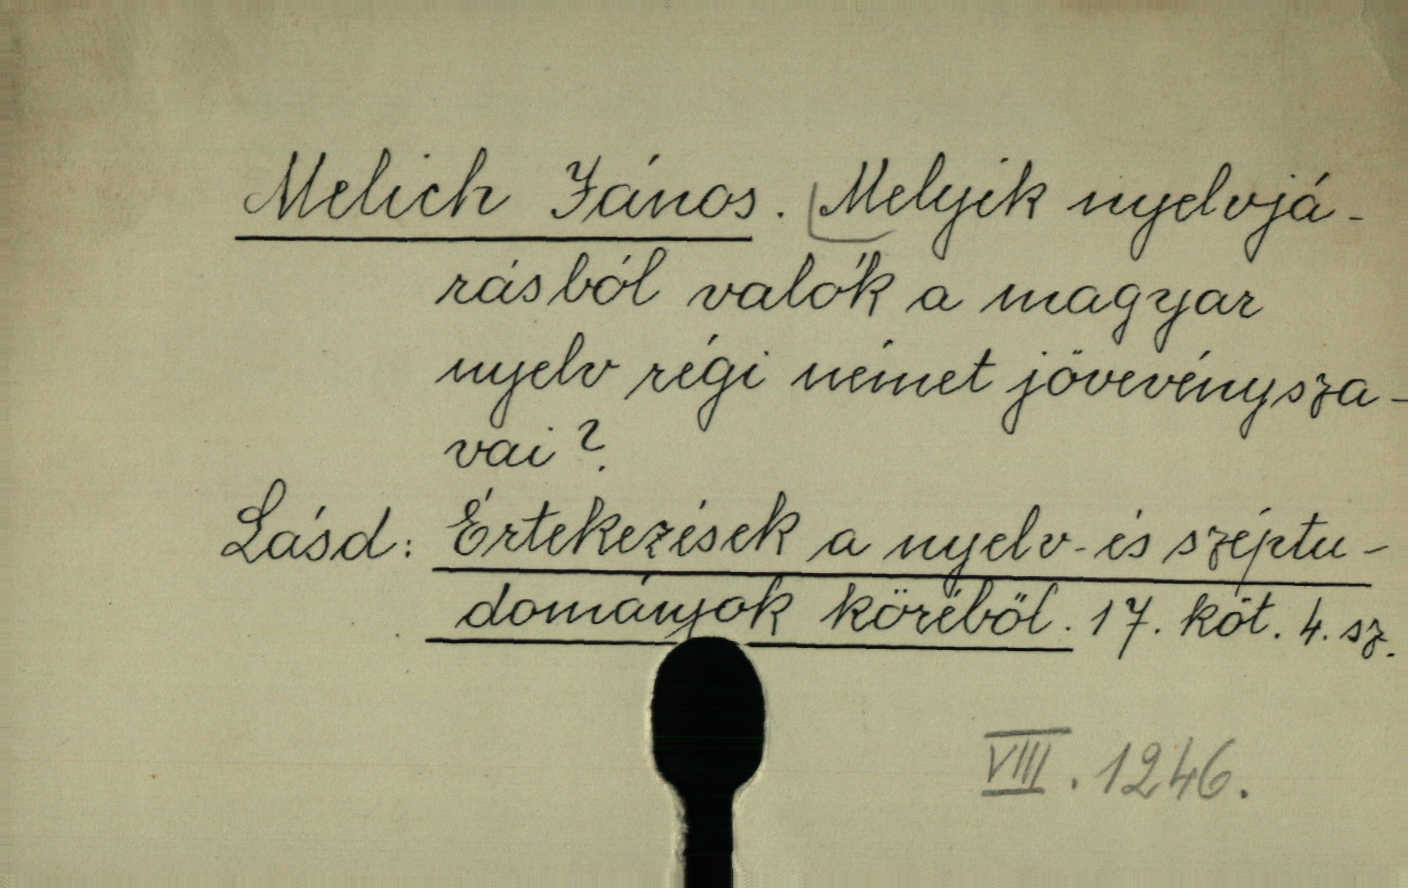 Melich János. Melyik nyelvjá-
rásból valók a magyar
nyelv régi német jövevénysza-
vai?
Lásd: Értekezések a nyelv- és széptu-
dományok köréből. 17. köt. 4. sz.
VIII. 1246.